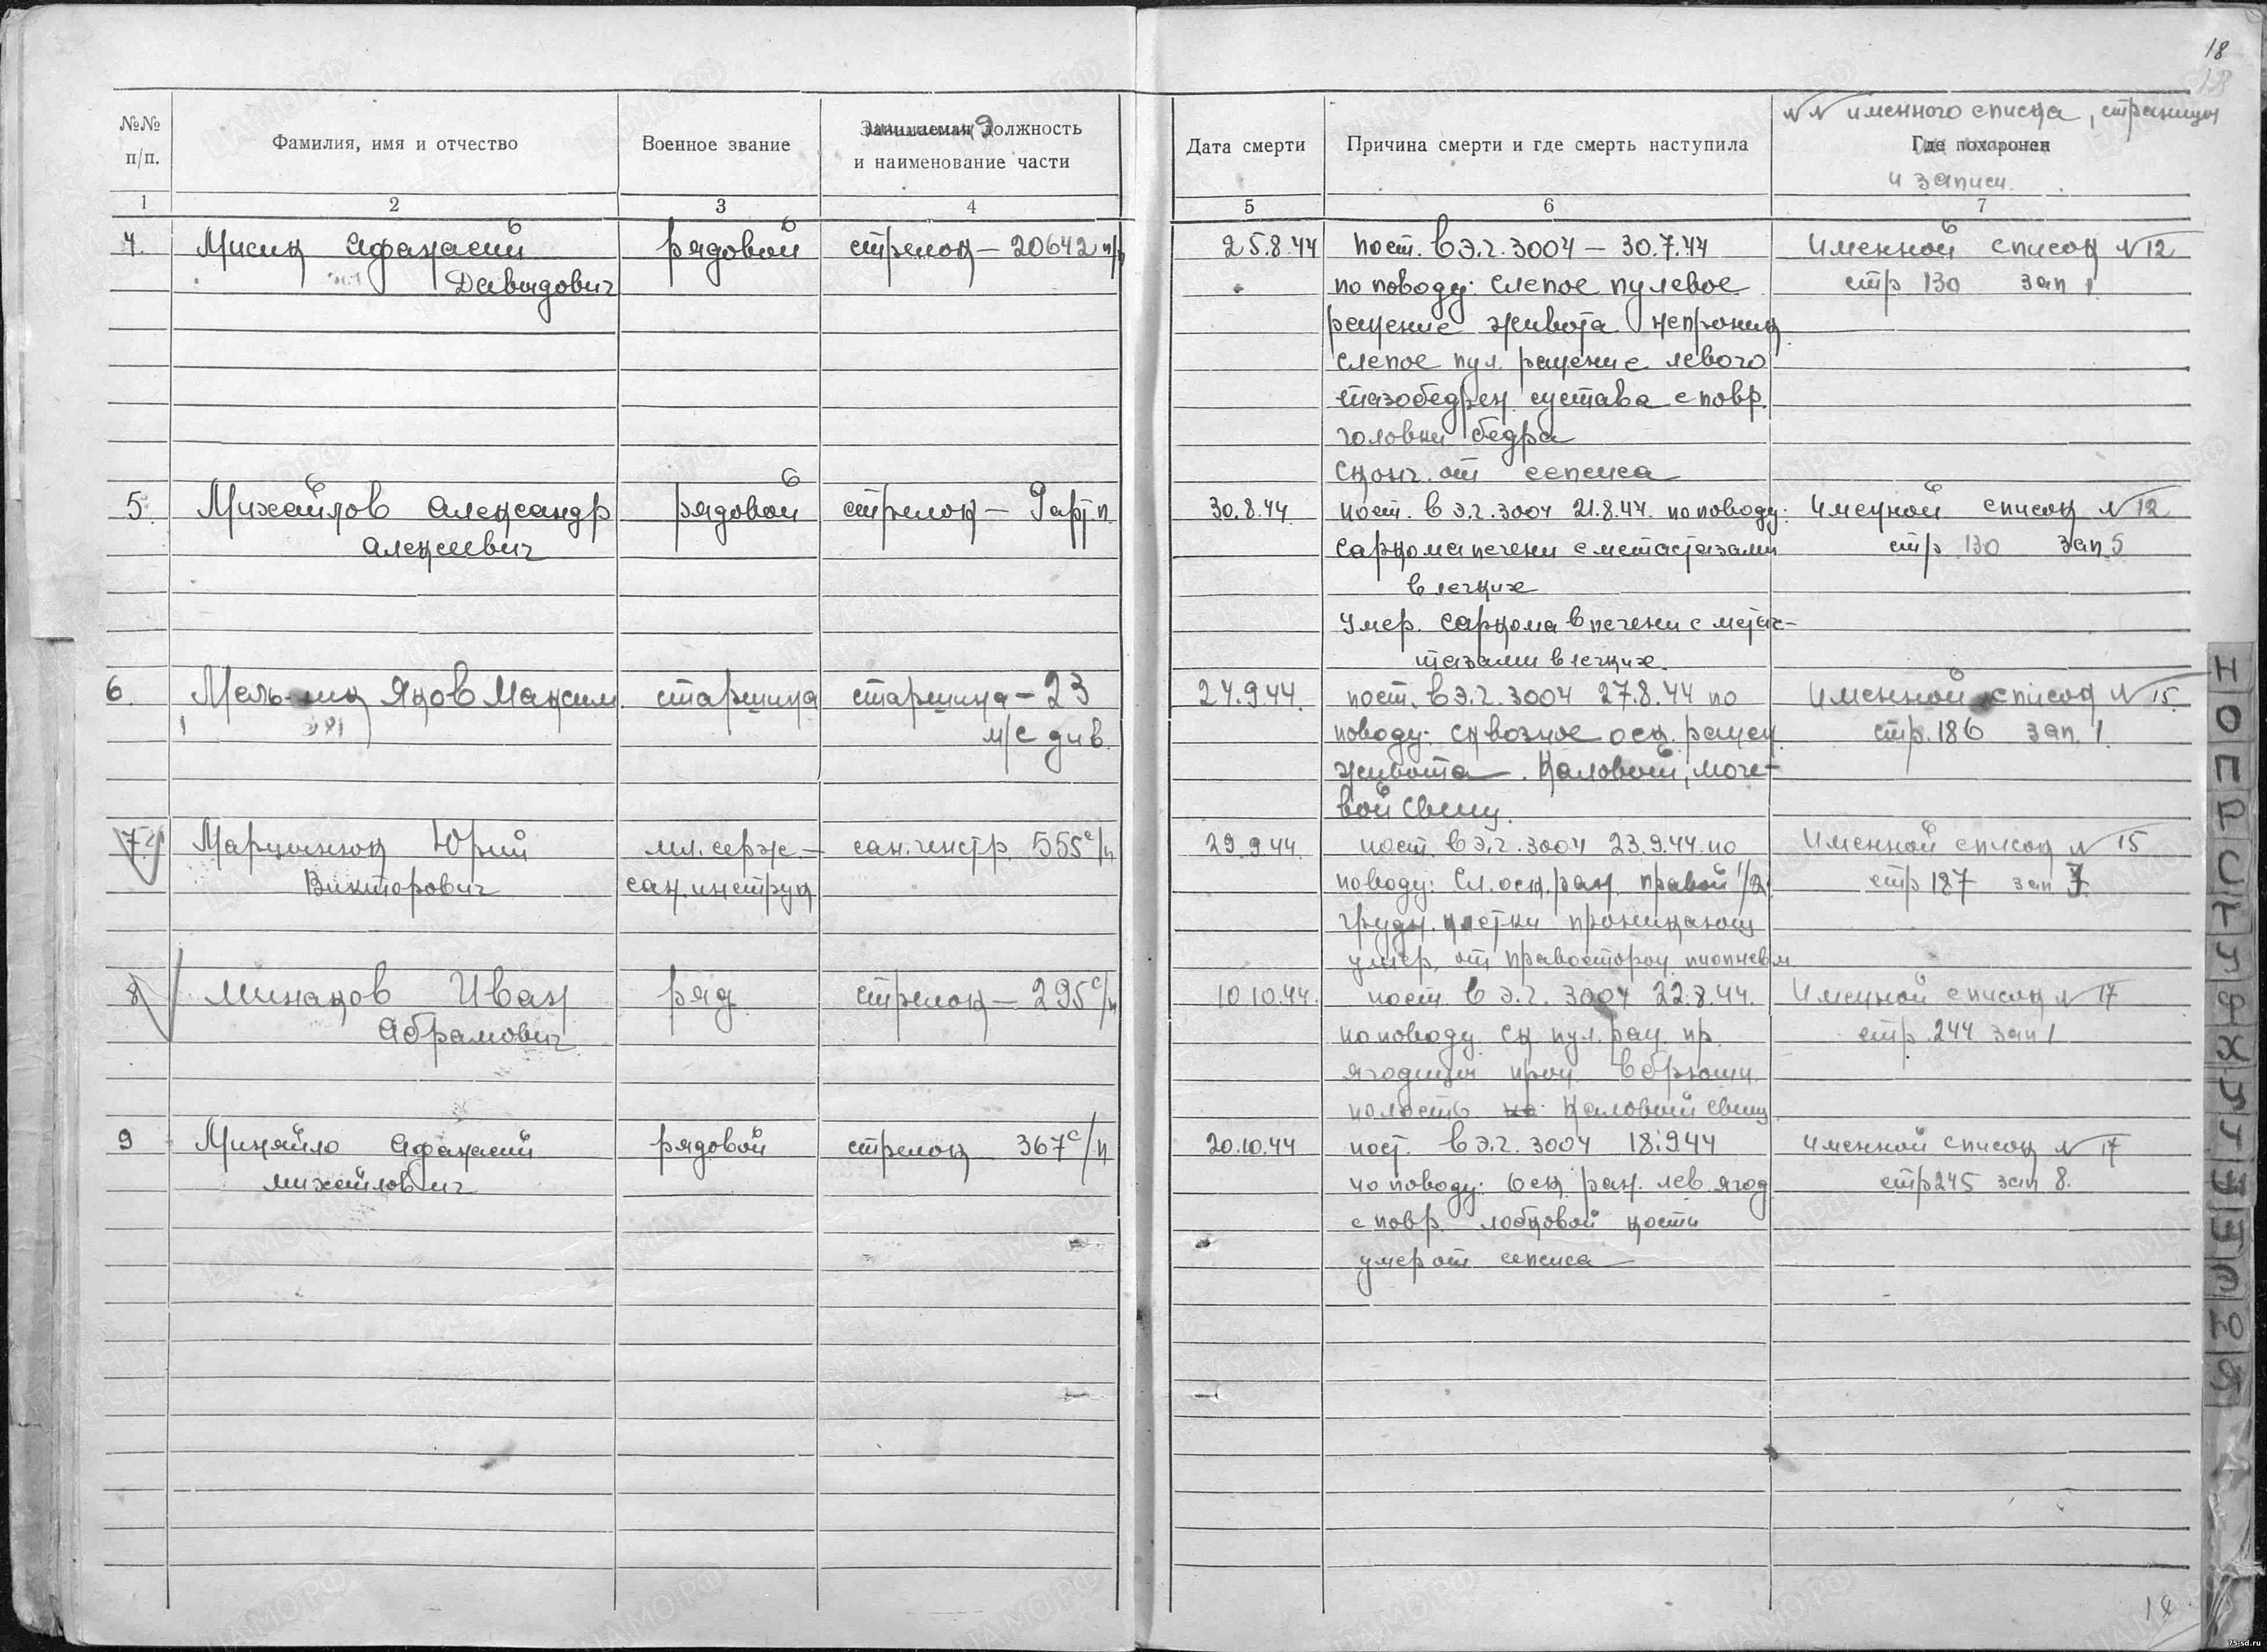 18
18
№№ именного списка, страницы
№№ п/п.
Фамилия, имя и отчество
Военное звание
Занимаемая должность
и наименование части
Дата смерти
Причина смерти и где смерть наступила
Где похоронен
и записи.
1 2 3 4 5 6 7
4. Мисик Афанасий рядовой стрелок — 20642 п/п 25.8.44 пост. в э.г. 3004 — 30.7.44 Именной список №12
Давыдович по поводу: слепое пулевое стр 130 зап 1
ранение живота непроник
слепое пул. ранение левого
тазобедрен. сустава с повр.
головки бедра
сконч. от сепсиса
5. Михайлов Александр рядовой стрелок — 9 арт.п. 30.8.44. пост. в э.г. 3004 21.8.44. по поводу: Именной список №12
Алексеевич саркома печени с метастазами стр 130 зап. 5
в легких
Умер. саркома в печени с метас-
тазами в легких.
6. Мельник Яков Максим. старшина старшина — 23 27.9.44. пост. в э.г. 3004 27.8.44 по Именной список №15.
м/с див. поводу: сквозное оск. ранен стр. 186 зап. 1
живота. Каловый, моче-
вой свищ.
7 Марцинюк Юрий мл. серж. — сан. инстр. 555 с/п 29.9.44. пост. в э.г. 3004 23.9.44. по Именной список № 15
Викторович сан. инструк поводу: Сл. оск. ран. правой 1/2 стр 187 зап 7.
грудн. клетки проникающ
умер. от правосторон. пиопневм
8 Минаков Иван ряд. стрелок — 295 с/п 10.10.44. пост. в э.г. 3004 22.8.44. Именной список № 17
Абрамович по поводу ск пул. ран. пр. стр. 244 зап 1
ягодицы прон. в брюшн.
полость Каловый свищ
9 Миняйло Афанасий рядовой стрелок 367 с/п 20.10.44 пост. в э.г. 3004 18.9.44 Именной список № 17
Михайлович по поводу: Оск. ран. лев. ягод стр 245 зап 8.
с повр. лобковой кости
умер от сепсиса
Н
О
П
Р
С
Т
У
Ф
Х
Ц
Ч
Ш
Щ
Э
Ю
Я
18
ЦАМО.РФ
75-sd.ru